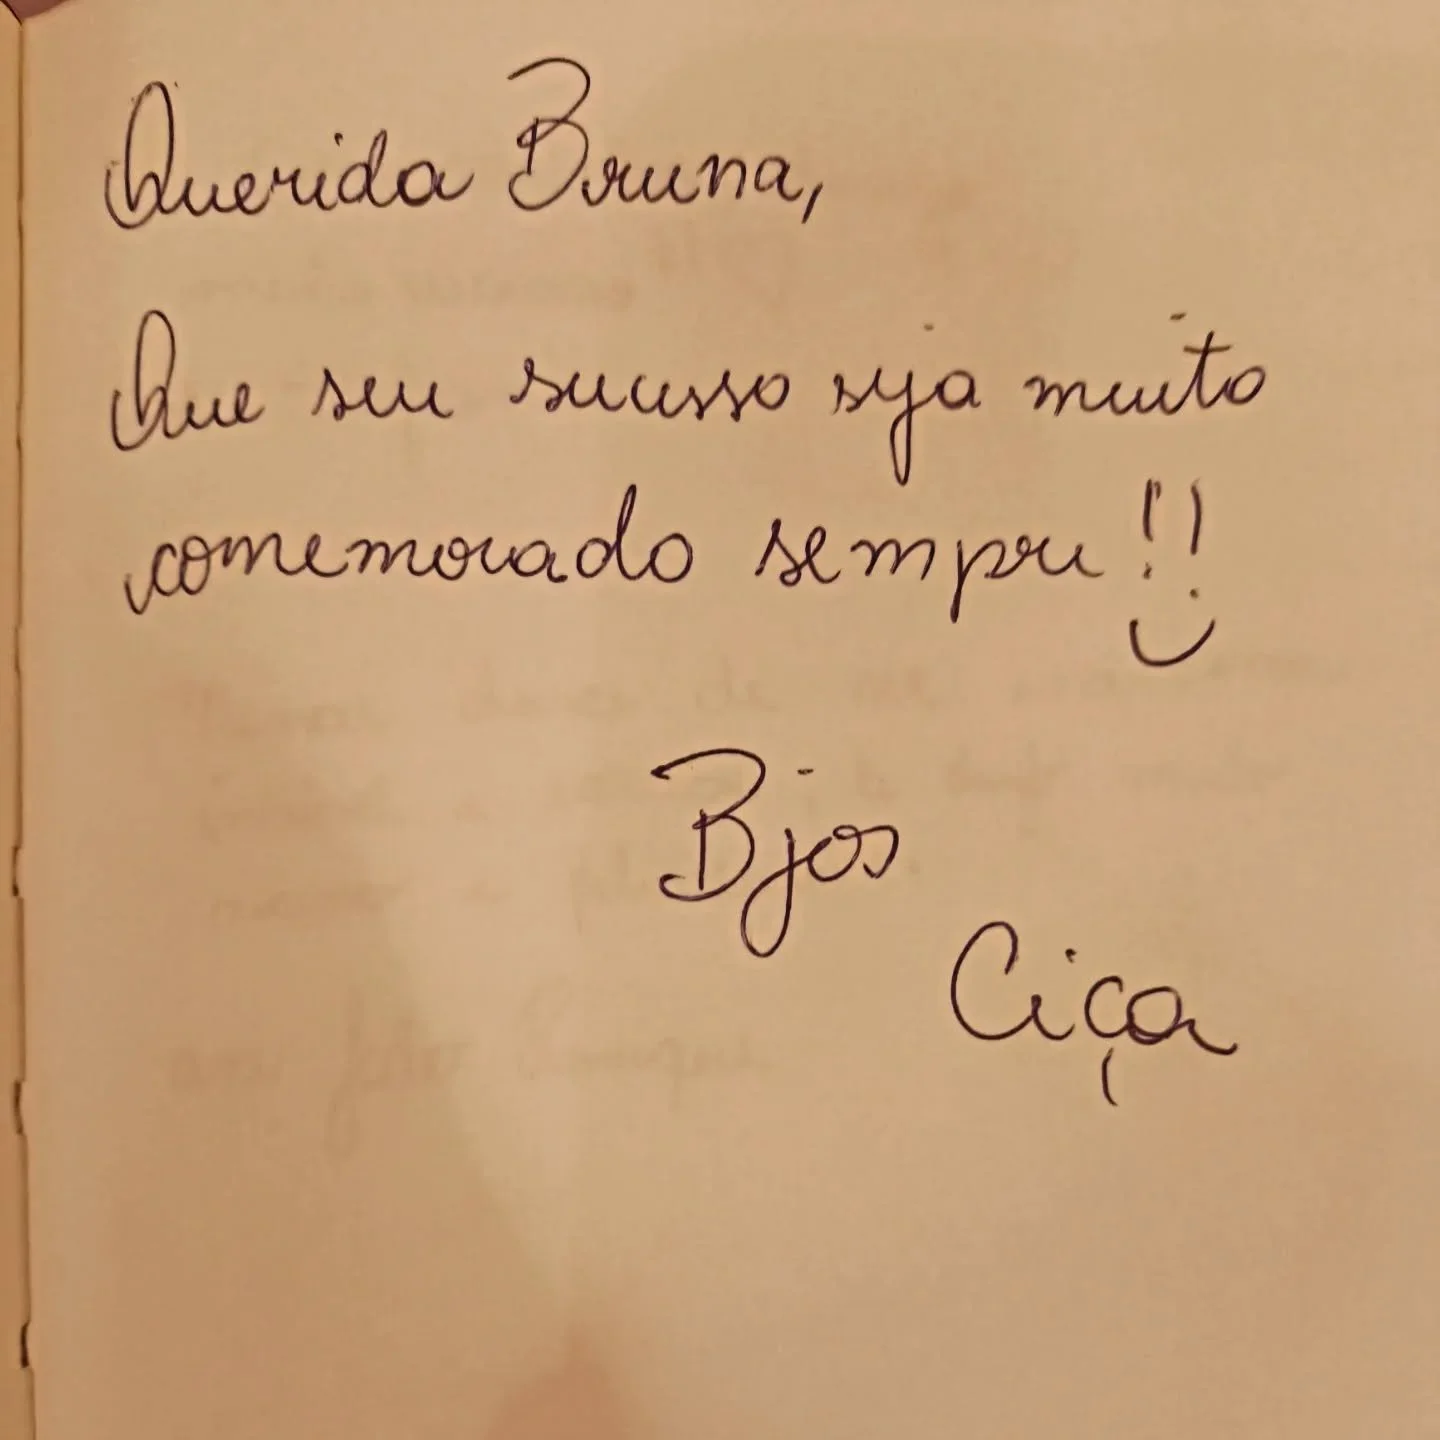 Querida Bruna,
Que seu sucesso seja muito
comemorado sempre!!
Bjos
Ciça